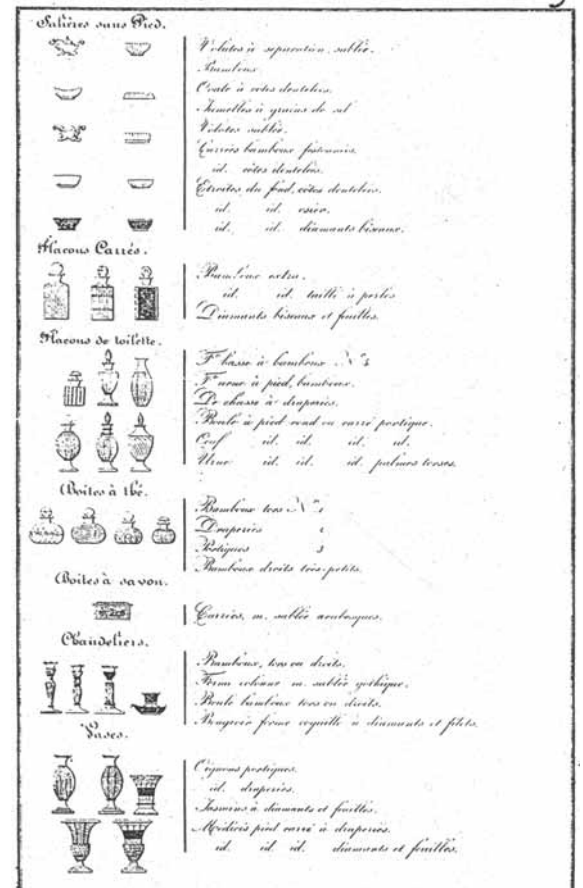 Salières sans Pied.
Volutes à séparation, sablée.
Bambous
Ovale à côtes dentelées
Jumelles à grains de sel
Volutes sablée.
Carrées bambous festonnées
id. côtes dentelées.
Etroites du fond, côtes dentelées.
id. id. osier.
id. id. diamants biseaux.
Flacons Carrés.
Bambous extra.
id. id. taille à perles
Diamants biseaux et feuilles.
Flacons de toilette.
Fme basse à bambous No
Fme urne à pied, bambous.
De chasse à draperies.
Boule à pied rond ou carré portique.
Oeuf id. id. id. id.
Urne id. id. id. palmes torses.
Boîtes à thé.
Bambous tors No 1
Draperies 2
Portiques 3
Bambous droits très-petits.
Boîtes à savon.
Carrées, m. sablée arabesques.
Chandeliers.
Bambous, tors ou droits.
Forme colonne m. sablée gothique.
Boule bambous tors ou droits.
Bougeoir forme coquille à diamants et filets.
Vases.
Oignons portiques.
id. draperies.
Jasmins à diamants et feuilles.
Médicis pied carré à draperies.
id. id. id. diamants et feuilles.